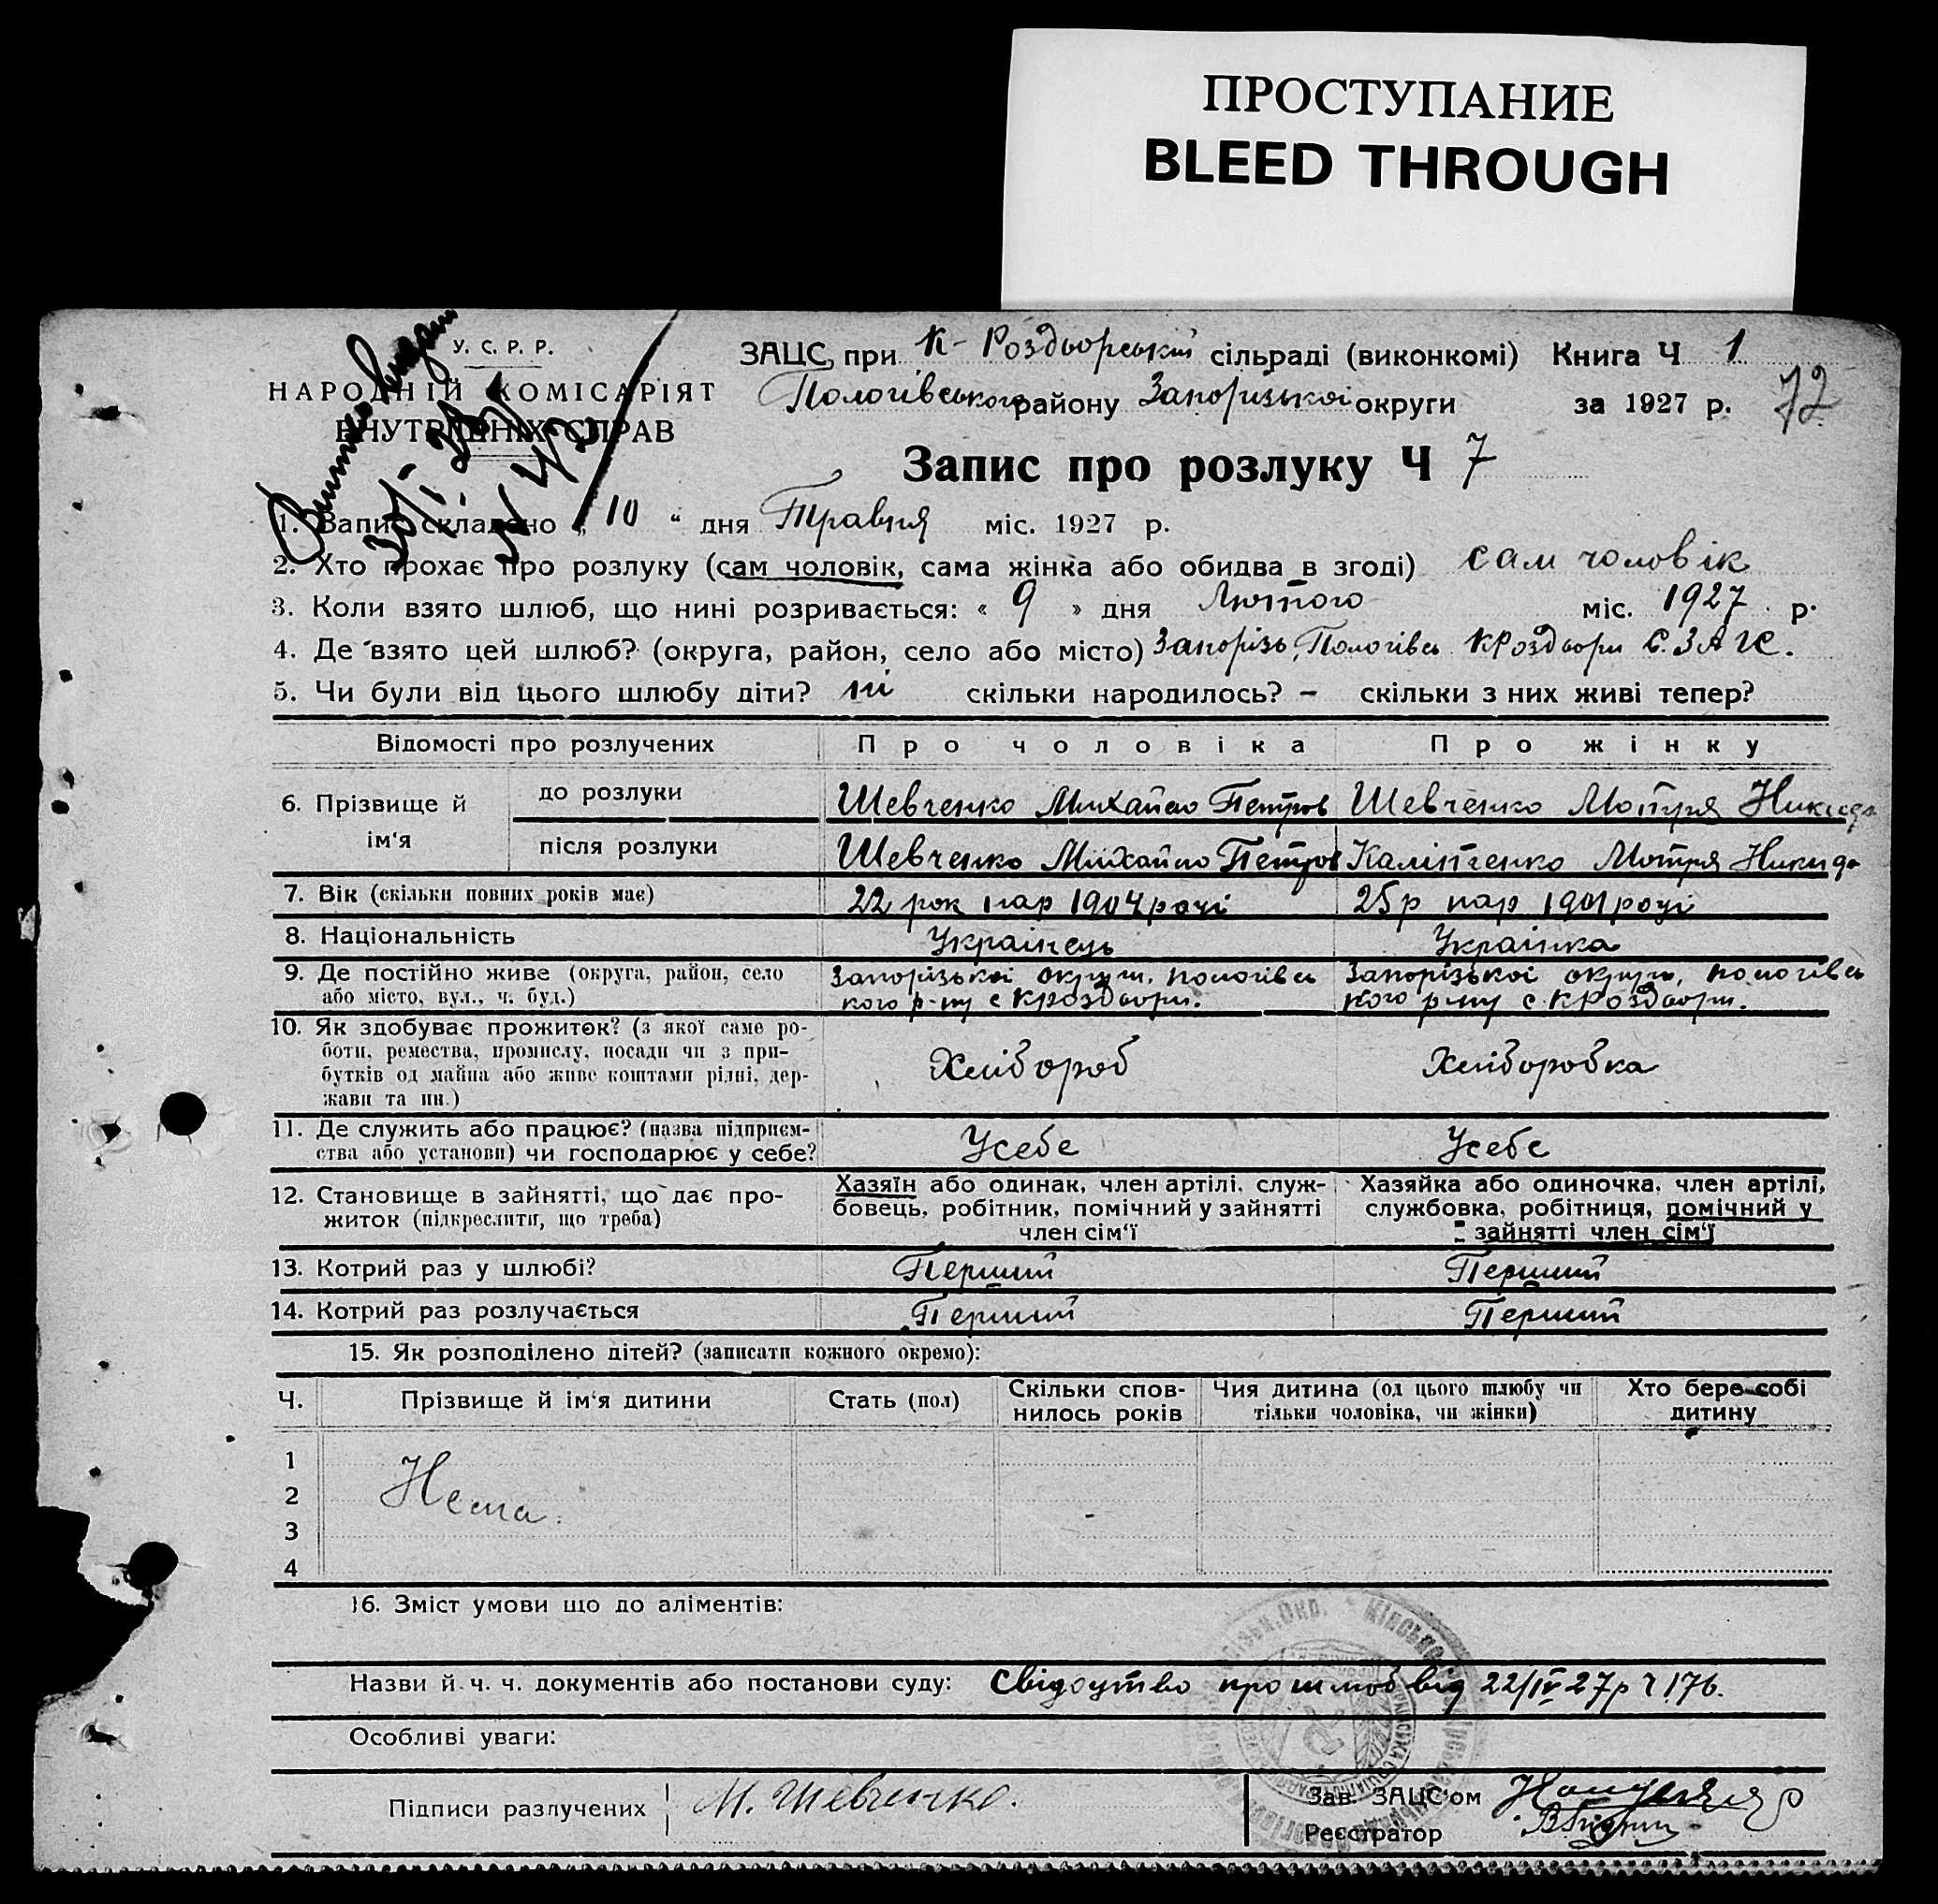 ПРОСТУПАНИЕ
BLEED THROUGH
У. С. Р. Р.
НАРОДНІЙ КОМІСАРІЯТ
ВНУТРІШНІХ СПРАВ
ЗАЦС при К-Роздьорській сільраді (виконкомі) Книга Ч 1
Пологівського району Запорізькоі округи за 1927 р. 72
Запис про розлуку Ч 7
1. Запис складено „ 10 “ дня Травня міс. 1927 р.
2. Хто прохає про розлуку (сам чоловік, сама жінка або обидва в згоді) сам чоловік
3. Коли взято шлюб, що нині розривається: « 9 » дня Лютого міс. 1927 р.
4. Де взято цей шлюб? (округа, район, село або місто) Запорізь, Пологівсь КРоздьори С. ЗАГС.
5. Чи були від цього шлюбу діти? ні скільки народилось? – скільки з них живі тепер?
Відомості про розлучених Про чоловіка Про жінку
6. Прізвище й ім‘я
до розлуки Шевченко Михайло Петров Шевченко Мотря Никида
після розлуки Шевченко Михайло Петров Калініченко Мотря Никида
7. Вік (скільки повних років має) 22 рок нар 1904 році 25 р нар 1901 році
8. Національність Украінець Украінка
9. Де постійно живе (округа, район, село Запорізькоі округи, пологівсь Запорізькоі округи, пологівсь
або місто, вул., ч. буд.) кого р-ну с КРоздьори. кого р-ну с. КРоздьори.
10. Як здобуває прожиток? (з якої саме ро-
боти, ремества, промислу, посади чи з при-
бутків од майна або живе коштами рідні, дер-
жави та ин.)
Хлібороб Хлiборобка
11. Де служить або працює? (назва підприєм-
ства або установи) чи господарює у себе?
Усебе Усебе
12. Становище в зайнятті, що дає про-
житок (підкреслити, що треба)
Хазяїн або одинак, член артілі, служ-
бовець, робітник, помічний у зайнятті
член сім‘ї
Хазяйка або одиночка, член артілі,
службовка, робітниця, помічний у
зайнятті член сім‘ї
13. Котрий раз у шлюбі? Перший Перший
14. Котрий раз розлучається Перший Перший
15. Як розподілено дітей? (записати кожного окремо):
Ч. Прізвище й ім‘я дитини Стать (пол) Скільки спов-
нилось років Чия дитина (од цього шлюбу чи
тільки чоловіка, чи жінки) Хто бере собі
дитину
1
2 Нема.
3
4
16. Зміст умови що до аліментів:
Назви й ч. ч. документів або постанови суду: Свідоцтво про шлюб від 22/IV 27р Ч 176.
Особливі уваги:
Підписи разлучених М. Шевченко.
Зав. ЗАЦС‘ом
Реєстратор